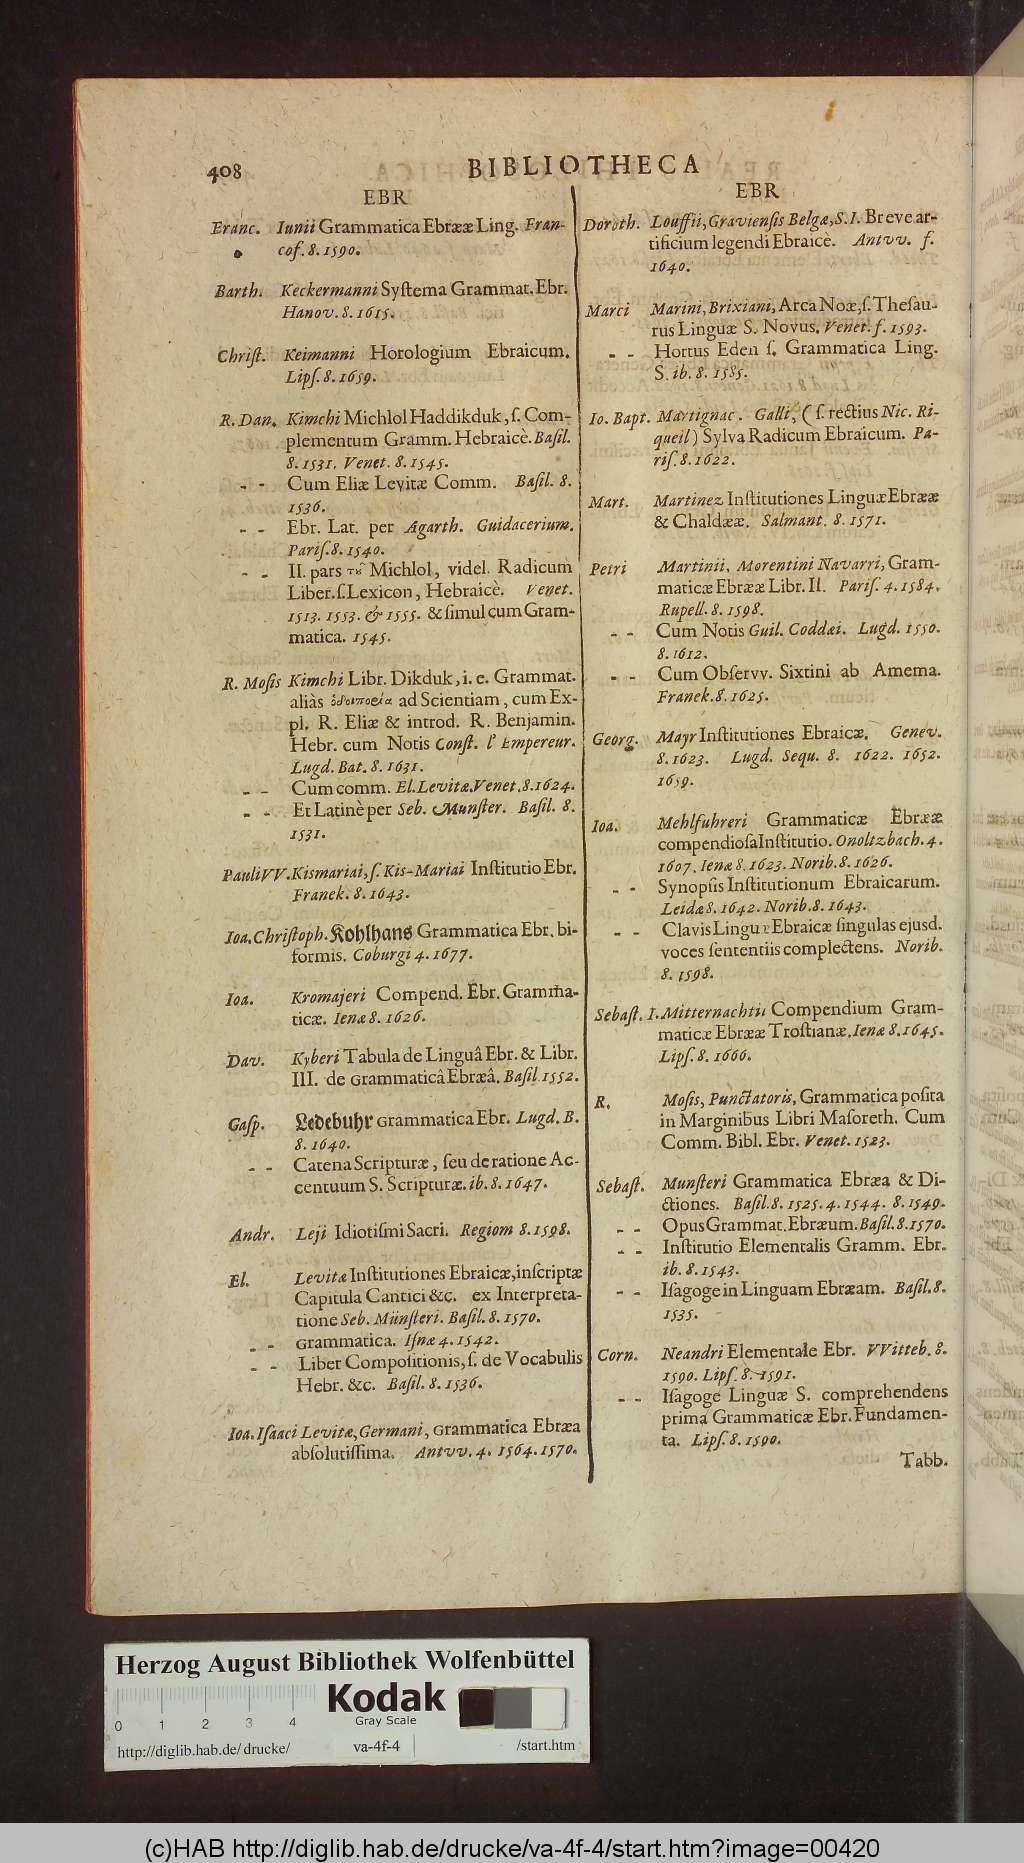 408
BIBLIOTHECA
EBR
Franc. Iunii Grammatica Ebrææ Ling. Fran-
cof. 8. 1590.
Barth. Keckermanni Syſtema Grammat. Ebr.
Hanov. 8. 1615.
Chriſt. Keimanni Horologium Ebraicum.
Lipſ. 8. 1659.
R. Dan. Kimchi Michlol Haddikduk, ſ. Com-
plementum Gramm. Hebraicè. Baſil.
8. 1531. Venet. 8. 1545.
- - Cum Eliæ Levitæ Comm. Baſil. 8.
1536.
- - Ebr. Lat. per Agarth. Guidacerium.
Pariſ. 8. 1540.
- - II. pars Michlol, videl. Radicum
Liber. ſ. Lexicon, Hebraicè. Venet.
1513. 1553. & 1555. & ſimul cum Gram-
matica. 1545.
R. Moſis Kimchi Libr. Dikduk, i. e. Grammat.
aliàs ὁδοιπορία ad Scientiam, cum Ex-
pl. R. Eliæ & introd. R. Benjamin.
Hebr. cum Notis Conſt. l' Empereur.
Lugd. Bat. 8. 1631.
- - Cum comm. El. Levitæ. Venet. 8. 1624.
- - Et Latinè per Seb. Munſter. Baſil. 8.
1531.
Pauli VV. Kismariai, ſ. Kis-Mariai Inſtitutio Ebr.
Franek. 8. 1643.
Ioa. Chriſtoph. Kohlhans Grammatica Ebr. bi-
formis. Coburgi 4. 1677.
Ioa. Kromajeri Compend. Ebr. Gramma-
ticæ. Ienæ 8. 1626.
Dav. Kyberi Tabula de Linguâ Ebr. & Libr.
III. de Grammaticâ Ebræâ. Baſil. 1552.
Gaſp. Ledebuhr Grammatica Ebr. Lugd. B.
8. 1640.
- - Catena Scripturæ, ſeu de ratione Ac-
centuum S. Scripturæ. ib. 8. 1647.
Andr. Leji Idiotiſmi Sacri. Regiom 8. 1598.
El. Levitæ Inſtitutiones Ebraicæ, inſcriptæ
Capitula Cantici &c. ex Interpreta-
tione Seb. Münſteri. Baſil. 8. 1570.
- - Grammatica. Iſnæ 4. 1542.
- - Liber Compoſitionis, ſ. de Vocabulis
Hebr. &c. Baſil. 8. 1536.
Ioa. Iſaaci Levitæ, Germani, Grammatica Ebræa
abſolutiſſima. Antvv. 4. 1564. 1570.
EBR
Doroth. Louffii, Gravienſis Belgæ, S. I. Breve ar-
tificium legendi Ebraicè. Antvv. f.
1640.
Marci Marini, Brixiani, Arca Noæ, ſ. Theſau-
rus Linguæ S. Novus. Venet. f. 1593.
- - Hortus Eden ſ. Grammatica Ling.
S. ib. 8. 1585.
Io. Bapt. Martignac. Galli, (ſ. rectius Nic. Ri-
queil) Sylva Radicum Ebraicum. Pa-
riſ. 8. 1622.
Mart. Martinez Inſtitutiones Linguæ Ebrææ
& Chaldææ. Salmant. 8. 1571.
Petri Martinii, Morentini Navarri, Gram-
maticæ Ebrææ Libr. II. Pariſ. 4. 1584.
Rupell. 8. 1598.
- - Cum Notis Guil. Coddæi. Lugd. 1550.
8. 1612.
- - Cum Obſervv. Sixtini ab Amema.
Franek. 8. 1625.
Georg. Mayr Inſtitutiones Ebraicæ. Genev.
8. 1623. Lugd. Sequ. 8. 1622. 1652.
1659.
Ioa. Mehlfuhreri Grammaticæ Ebrææ
compendioſa Inſtitutio. Onoltzbach. 4.
1607. Ienæ 8. 1623. Norib. 8. 1626.
- - Synopſis Inſtitutionum Ebraicarum.
Leidæ 8. 1642. Norib. 8. 1643.
- - Clavis Linguæ Ebraicæ ſingulas ejusd.
voces ſententiis complectens. Norib.
8. 1598.
Sebaſt. I. Mitternachtii Compendium Gram-
maticæ Ebrææ Troſtianæ. Ienæ 8. 1645.
Lipſ. 8. 1666.
R. Moſis, Punctatoris, Grammatica poſita
in Marginibus Libri Maſoreth. Cum
Comm. Bibl. Ebr. Venet. 1523.
Sebaſt. Munſteri Grammatica Ebræa & Di-
ctiones. Baſil. 8. 1525. 4. 1544. 8. 1549.
- - Opus Grammat. Ebræum. Baſil. 8. 1570.
- - Inſtitutio Elementalis Gramm. Ebr.
ib. 8. 1543.
- - Iſagoge in Linguam Ebræam. Baſil. 8.
1535.
Corn. Neandri Elementale Ebr. VVitteb. 8.
1590. Lipſ. 8. 1591.
- - Iſagoge Linguæ S. comprehendens
prima Grammaticæ Ebr. Fundamen-
ta. Lipſ. 8. 1590.
Tabb.
Herzog August Bibliothek Wolfenbüttel
Kodak
Gray Scale
0 1 2 3 4
http://diglib.hab.de/drucke/ va-4f-4 /start.htm
(c)HAB http://diglib.hab.de/drucke/va-4f-4/start.htm?image=00420